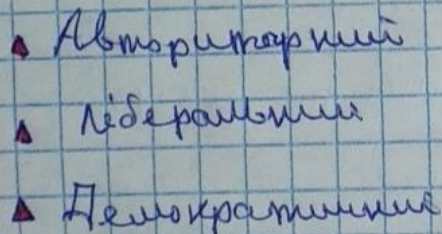 Авторитарний
Ліберальний
Демократичний